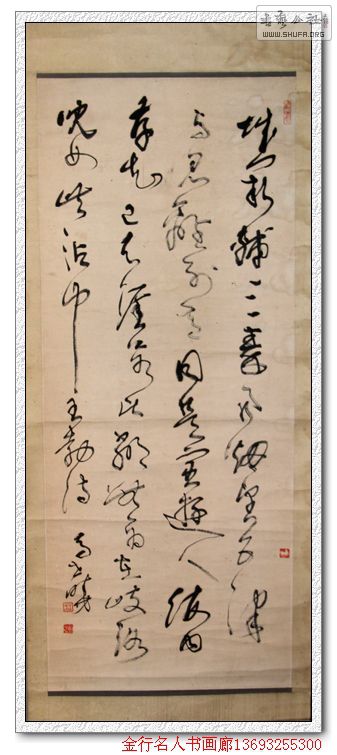 书艺公社
WWW.SHUFA.ORG
城闕輔三秦風烟望五津
与君離別意同是宦遊人海内
存知己天涯若比鄰無為在岐路
兒女共沾巾 王勃詩
金行名人书画廊13693255300